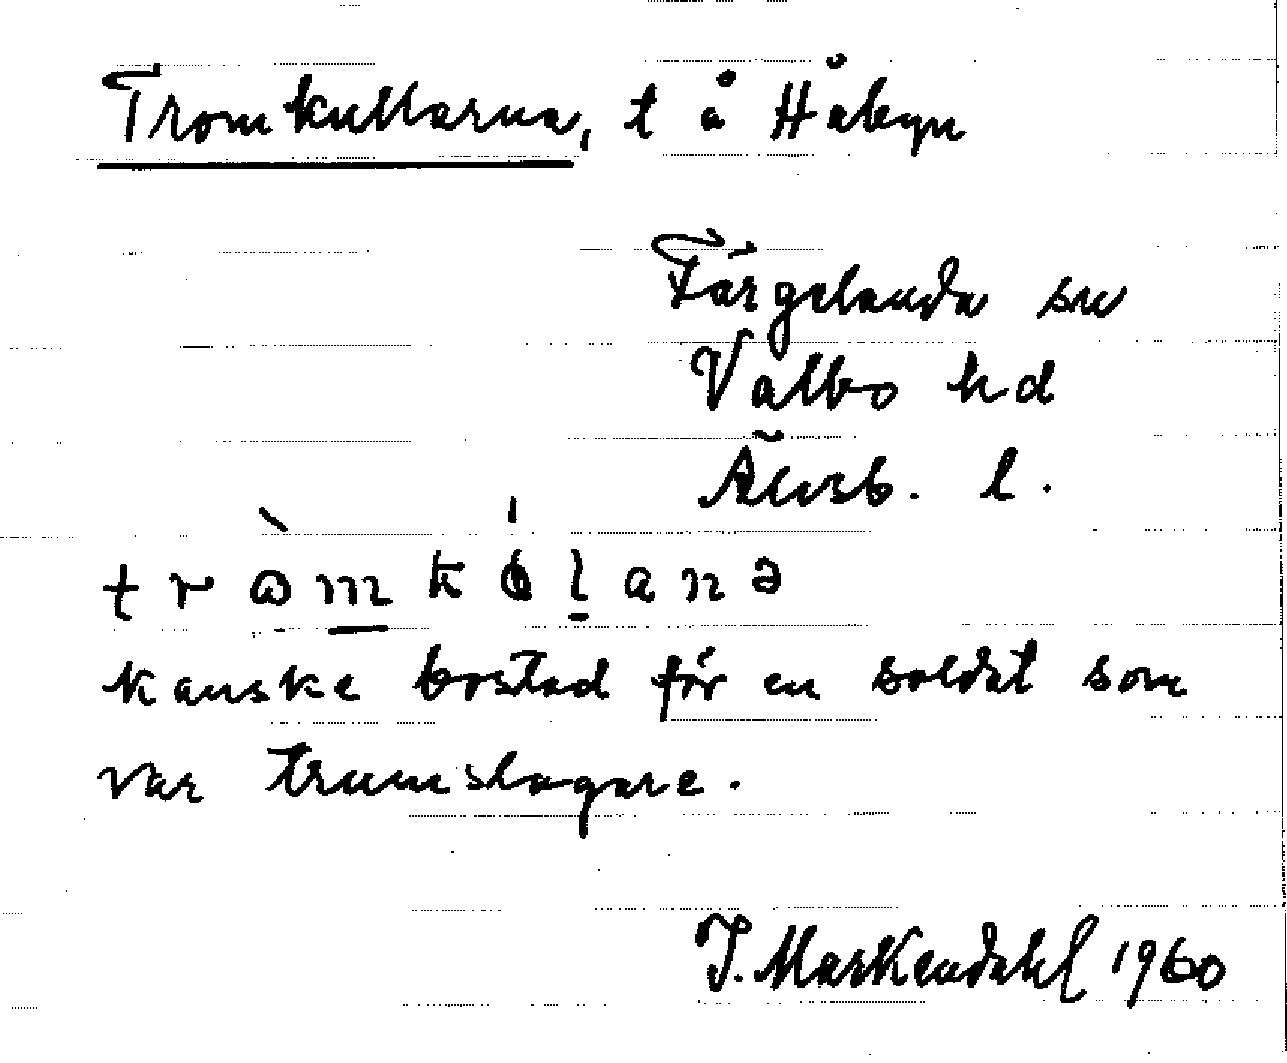 Tromkullarna, t å Håbyn
Färgelanda sn
Valbo hd
Älvsb. l.
kanske bostad för en soldat som
var trumslagare.
J. Markendahl 1960